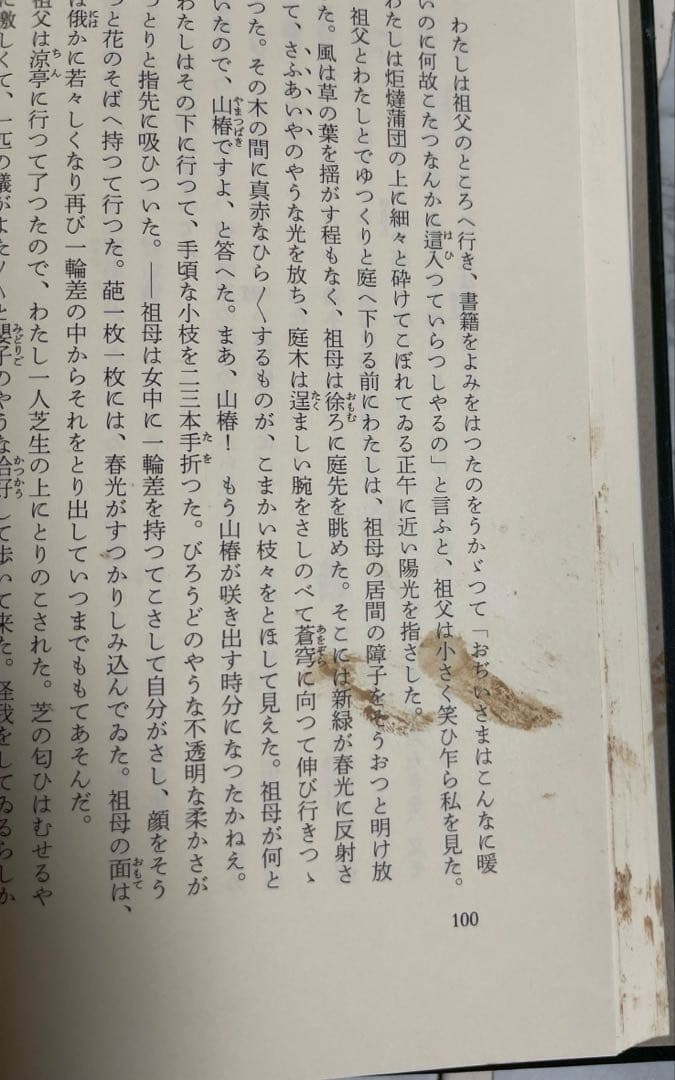 わたしは祖父のところへ行き、書籍をよみをはつたのをうかゞつて「おぢいさまはこんなに暖
いのに何故こたつなんかに這入つていらつしやるの」と言ふと、祖父は小さく笑ひ乍ら私を見た。
わたしは炬燵蒲団の上に細々と砕けてこぼれてゐる正午に近い陽光を指さした。
祖父とわたしとでゆつくりと庭へ下りる前にわたしは、祖母の居間の障子をそうおつと明け放
た。風は草の葉を揺がす程もなく、祖母は徐ろに庭先を眺めた。そこには新緑が春光に反射さ
て、さふあいやのやうな光を放ち、庭木は逞ましい腕をさしのべて蒼穹に向つて伸び行きつゝ
つた。その木の間に真赤なひら〳〵するものが、こまかい枝々をとほして見えた。祖母が何と
いたので、山椿ですよ、と答へた。まあ、山椿！　もう山椿が咲き出す時分になつたかねえ。
わたしはその下に行つて、手頃な小枝を二三本手折つた。びろうどのやうな不透明な柔かさが
つとりと指先に吸ひついた。――祖母は女中に一輪差を持つてこさして自分がさし、顔をそう
つと花のそばへ持つて行つた。葩一枚一枚には、春光がすつかりしみ込んでゐた。祖母の面は、
は俄かに若々しくなり再び一輪差の中からそれをとり出していつまでももてあそんだ。
祖父は涼亭に行つて了つたので、わたし一人芝生の上にとりのこされた。芝の匂ひはむせるや
に激しくて、一匹の
と嬰子のやうな恰好して歩いて来た。怪我をしてゐるらしか
100